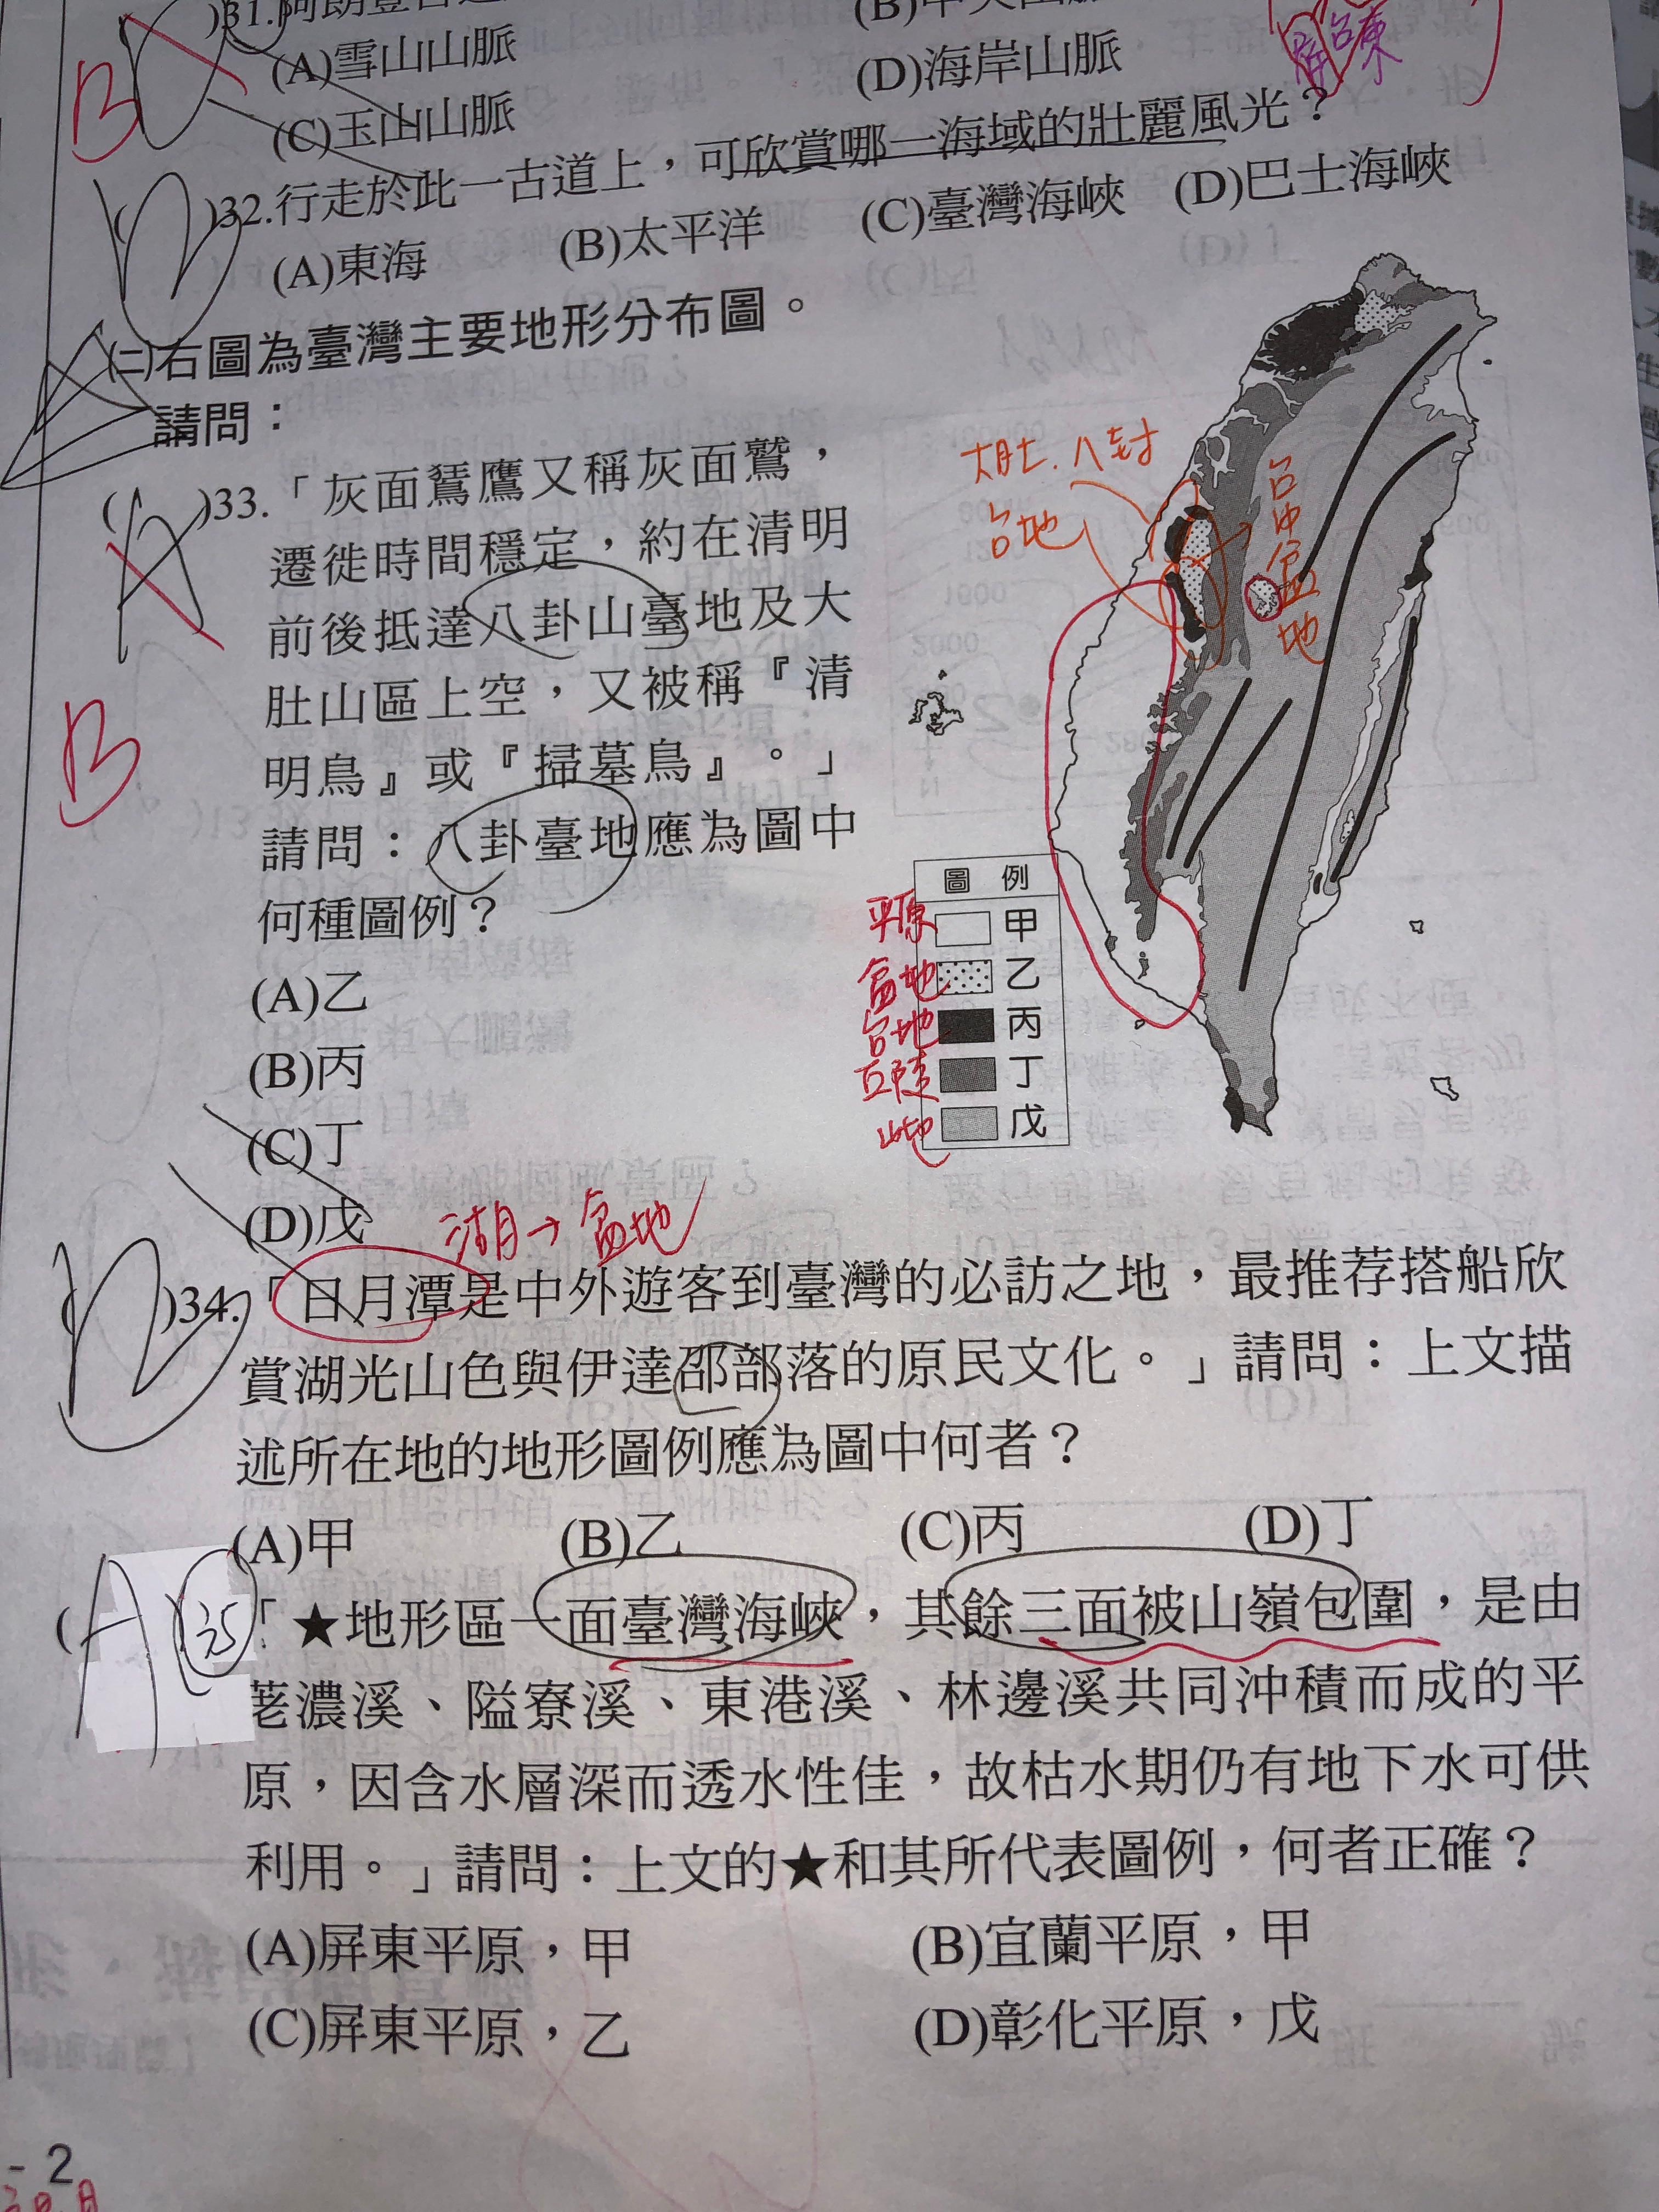 )31.阿朗壹古
(A)雪山山脈
(C)玉山山脈
(D)海岸山脈
B
()32.行走於此一古道上，可欣賞哪一海域的壯麗風光？
(A)東海 (B)太平洋 (C)臺灣海峽 (D)巴士海峽
㈡右圖為臺灣主要地形分布圖。
請問：
()33.「灰面鵟鷹又稱灰面鷲，
遷徙時間穩定，約在清明
前後抵達八卦山臺地及大
肚山區上空，又被稱『清
明鳥』或『掃墓鳥』。」
請問：八卦臺地應為圖中
何種圖例？
(A)乙
(B)丙
(C)丁
(D)戊
A
B
大肚.八卦
台地
台中盆地
圖例
平原 甲
盆地 乙
台地 丙
丘陵 丁
山地 戊
湖→盆地
()34.「日月潭是中外遊客到臺灣的必訪之地，最推荐搭船欣
賞湖光山色與伊達邵部落的原民文化。」請問：上文描
述所在地的地形圖例應為圖中何者？
(A)甲 (B)乙 (C)丙 (D)丁
(A) 35「★地形區一面臺灣海峽，其餘三面被山嶺包圍，是由
荖濃溪、隘寮溪、東港溪、林邊溪共同沖積而成的平
原，因含水層深而透水性佳，故枯水期仍有地下水可供
利用。」請問：上文的★和其所代表圖例，何者正確？
(A)屏東平原，甲 (B)宜蘭平原，甲
(C)屏東平原，乙 (D)彰化平原，戊
- 2